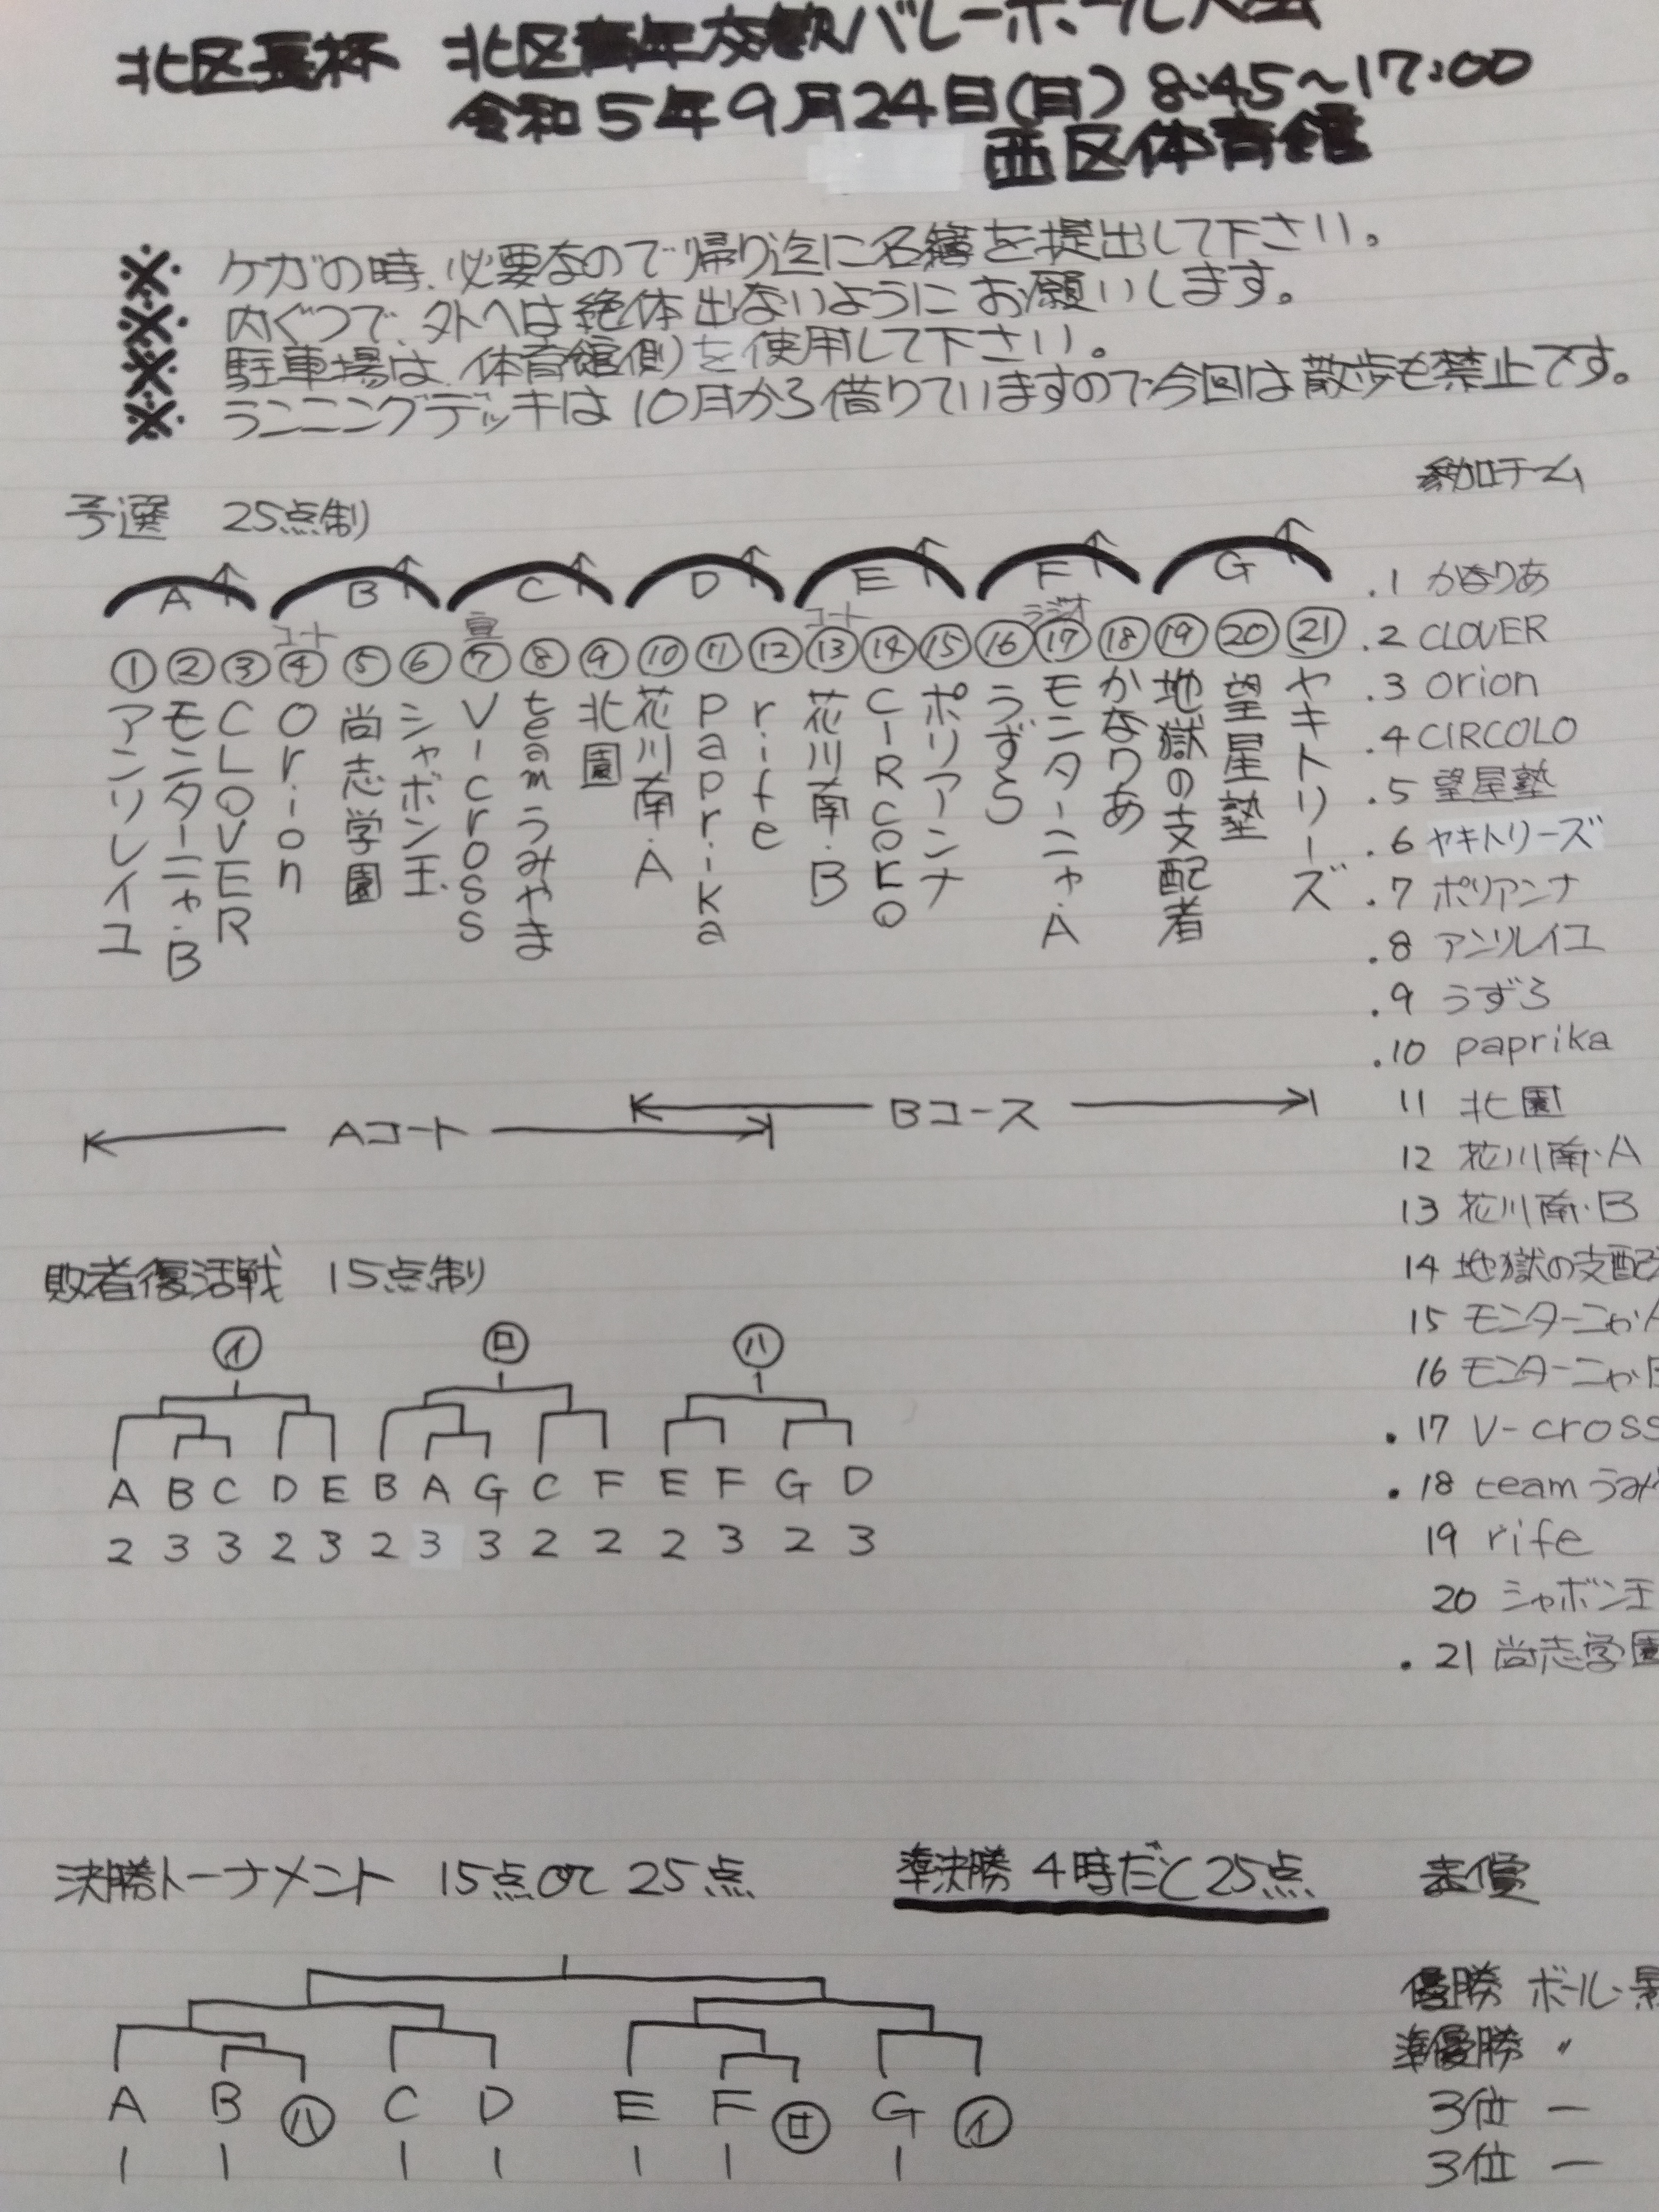 北区長杯 北区青年交歓バレーボール大会
令和5年9月24日(日) 8:45~17:00
西区体育館
※ ケガの時、必要なので帰り迄に名簿を提出して下さい。
※ 内ぐつで、外へは絶体出ないようにお願いします。
※ 駐車場は、体育館側を使用して下さい。
※ ランニングデッキは10月から借りていますので今回は散歩も禁止です。
予選 25点制
A B C D E F G
コート
コート ラジオ
① ② ③ ④ ⑤ ⑥ ⑦ ⑧ ⑨ ⑩ ⑪ ⑫ ⑬ ⑭ ⑮ ⑯ ⑰ ⑱ ⑲ ⑳ ㉑
アンリレイユ
モンターニャ・B
CLOVER
Orion
尚志学園
シャボン玉
V-cross
teamうみやま
北園
花川南・A
paprika
rife
花川南・B
CIRCOLO
ポリアーンナ
うずら
モンターニャ・A
かなりあ
地獄の支配者
望星塾
ヤキトリーズ
Aコート
Bコース
参加チーム
.1 かなりあ
.2 CLOVER
.3 orion
.4 CIRCOLO
.5 望星塾
.6 ヤキトリーズ
.7 ポリアンナ
.8 アンリレイユ
.9 うずら
.10 paprika
11 北園
12 花川南・A
13 花川南・B
14 地獄の支配
15 モンターニャ・A
16 モンターニャ・B
.17 V-cross
.18 teamうみ
19 rife
20 シャボン玉
.21 尚志学園
敗者復活戦 15点制
㋑ ㋺ ㋩
A B C D E B A G C F E F G D
2 3 3 2 3 2 3 3 2 2 2 3 2 3
決勝トーナメント 15点or 25点
準決勝 4時だと25点
A B ㋩ C D E F ㋺ G ㋑
1 1 1 1 1 1 1
表償
優勝 ボール・
準優勝 〃
3位 ー
3位 ー